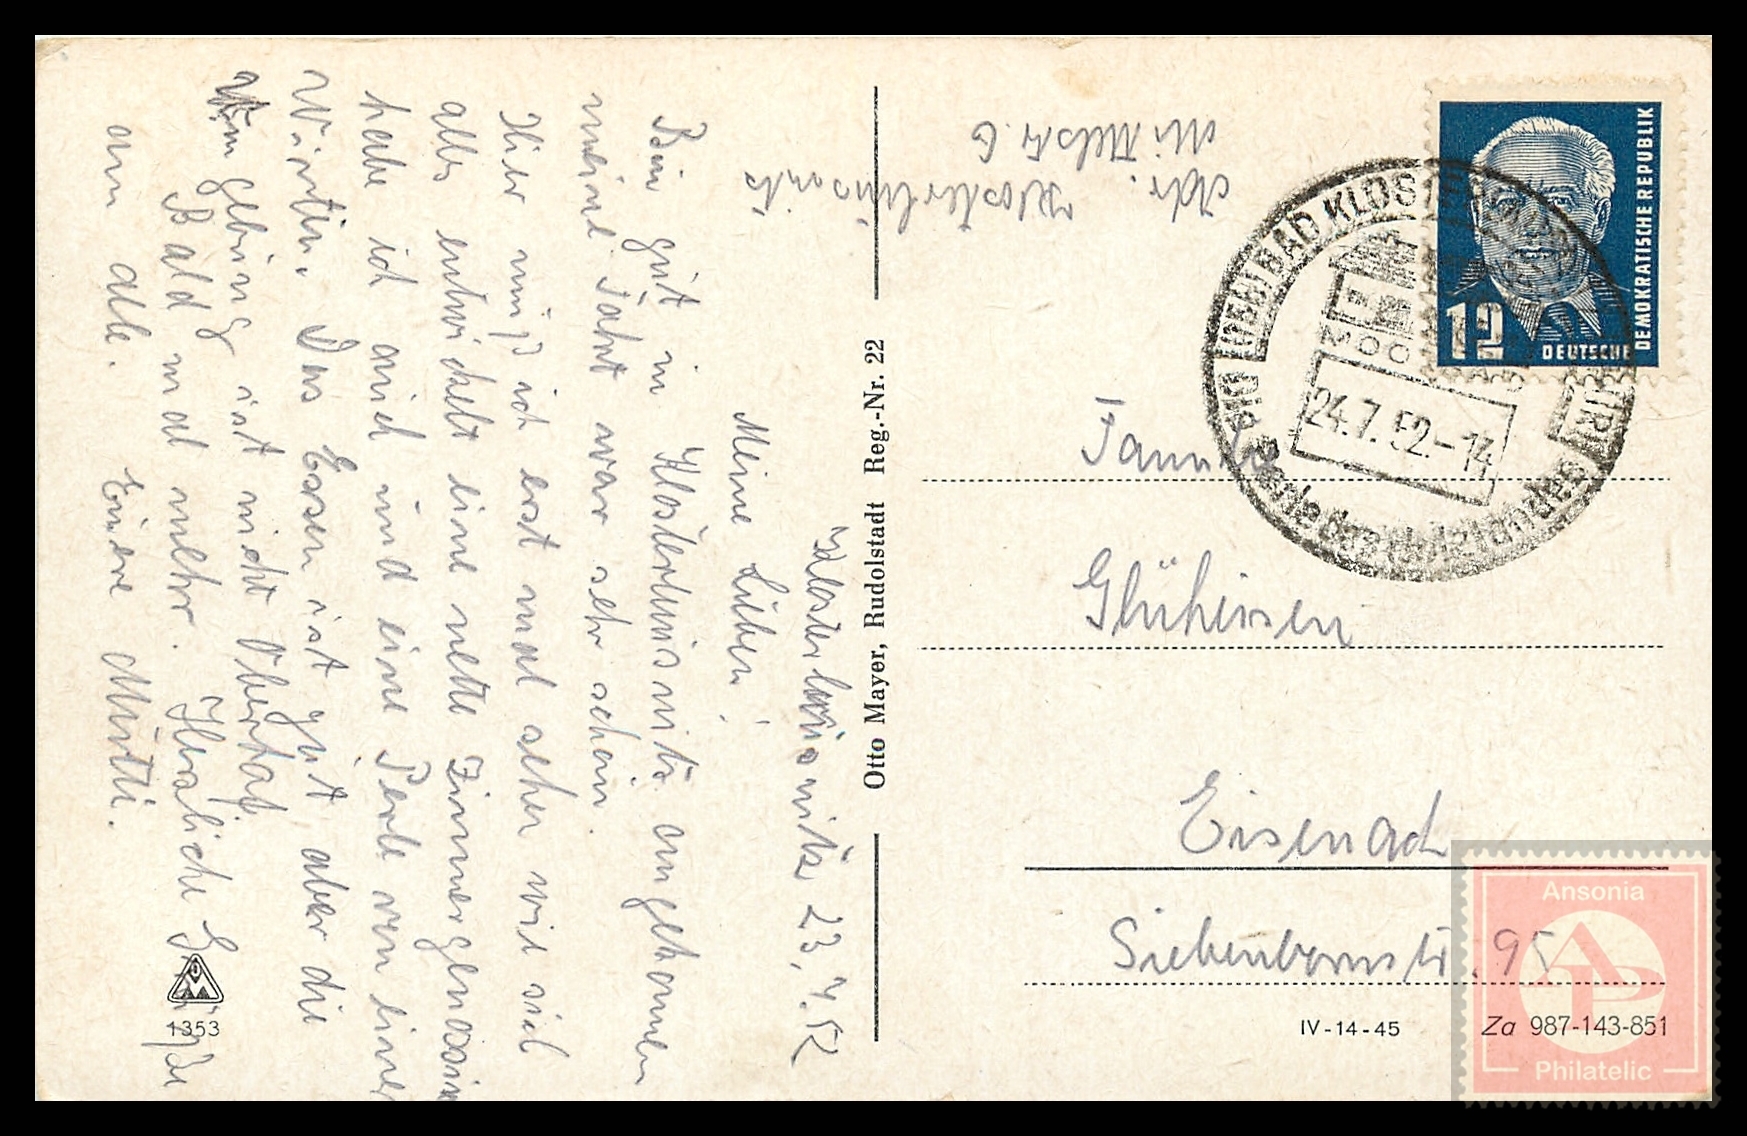 Klosterlausnitz 23.7.52
Meine Lieben!
Bin gut in Klosterlausnitz angekommen
meine Fahrt war sehr schön.
Hier muß ich erst mal sehen wie sich
alles entwickelt eine nette Zimmergenossin
habe ich auch und eine Perle von einer
Wirtin. Das Essen ist gut aber die
Umgebung ist nicht Oberhof.
Bald mal mehr. Herzliche Grüße
an alle. Eure Mutti.
Adr. Klosterlausnitz
Mittelstr. 6
Otto Mayer, Rudolstadt Reg.-Nr. 22
1353
DEUTSCHE DEMOKRATISCHE REPUBLIK
12
MOORBAD KLOSTERLAUSNITZ (THÜR)
24.7.52.-14
Die Perle des Holzlandes
Familie
Eisenach
Siebenbornstr. 95
IV-14-45
Za 987-143-851
Ansonia
AP
Philatelic